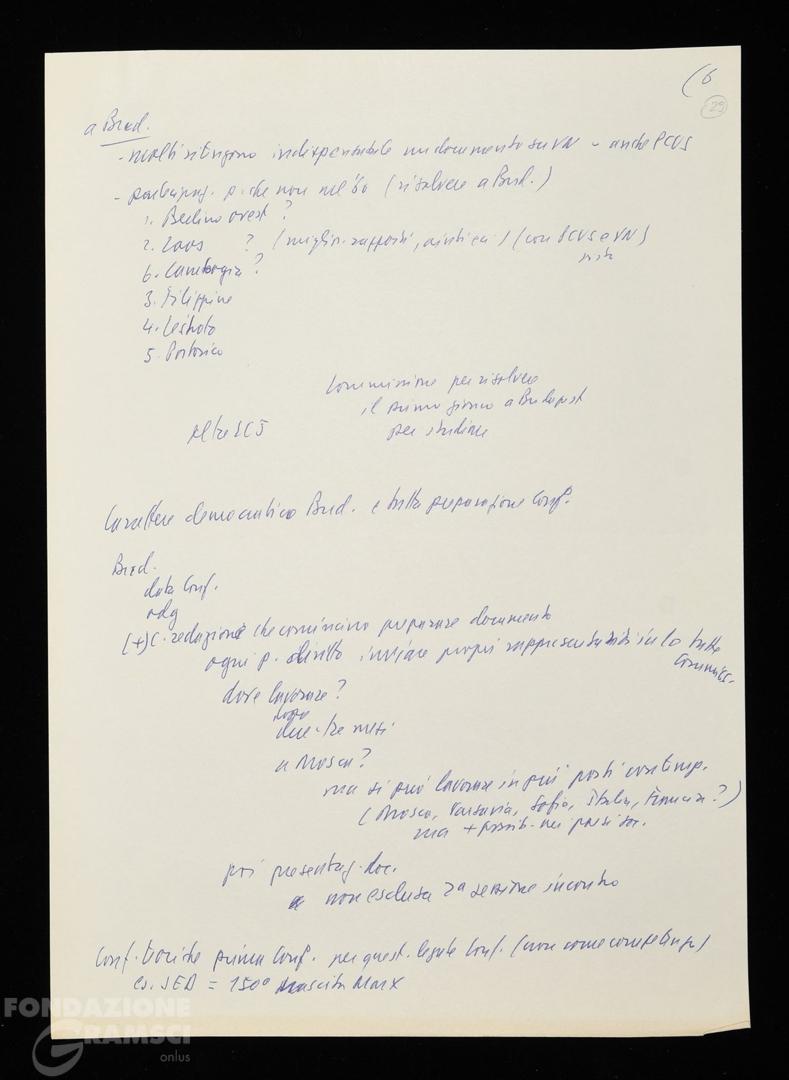 (6
29
a Bud.
- molti ritengono indispensabile un documento su VN - anche PCUS
- partecipaz. p. che non nel '60 (risolvere a Bud.)
1. Berlino ovest ?
2. Laos ? (miglior. rapporti, ) (con PCUS e VN)
6. Cambogia ?
3. Filippine
4. Leshoto
5. Portorico
Commissione per risolvere
il primo giorno a Budapest
per studiare
Carattere democratico Bud. e tutta preparazione Conf.
Bud.
data Conf.
odg
(+) C. redazione che cominci preparare documento
ogni p. diritto inviare propri rappresentanti in tutte
Commiss.
dove lavorare?
dopo
due-tre mesi
a Mosca?
ma si può lavorare in più posti contemp.
(Mosca, Varsavia, Sofia, Italia, Francia?)
ma + possib. nei paesi soc.
poi presentaz. doc.
non esclusa 2a sessione incontro
Conf. teoriche prima Conf. per quest. legate Conf. (non come )
es. SED = 150° nascita Marx
FONDAZIONE
GRAMSCI
onlus